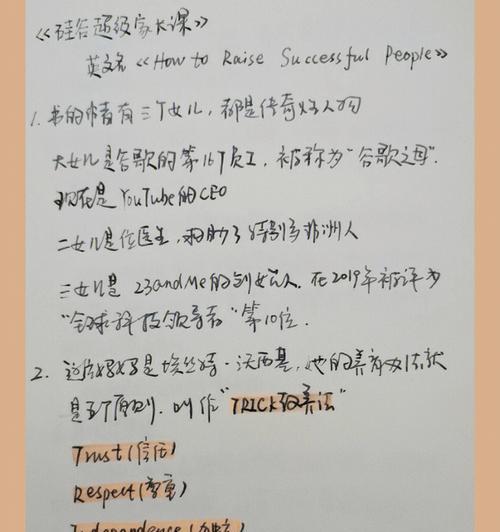 《硅谷超级家长课》
英文名《How to Raise Successful People》
1. 书的作者有三个女儿，都是传奇性人物
大女儿是谷歌的第16个员工，被称为“谷歌之母”.
现在是YouTube的CEO
二女儿是位医生，救助了特别多非洲人
三女儿是 23andMe的创始人. 在2019年被评为
“全球科技领导者”第10位.
2. 这位妈妈是埃丝特·沃西基，她的养育办法就
是五个原则. 叫作“TRICK教养法”
Trust(信任)
Respect(尊重)
Independence(独立)